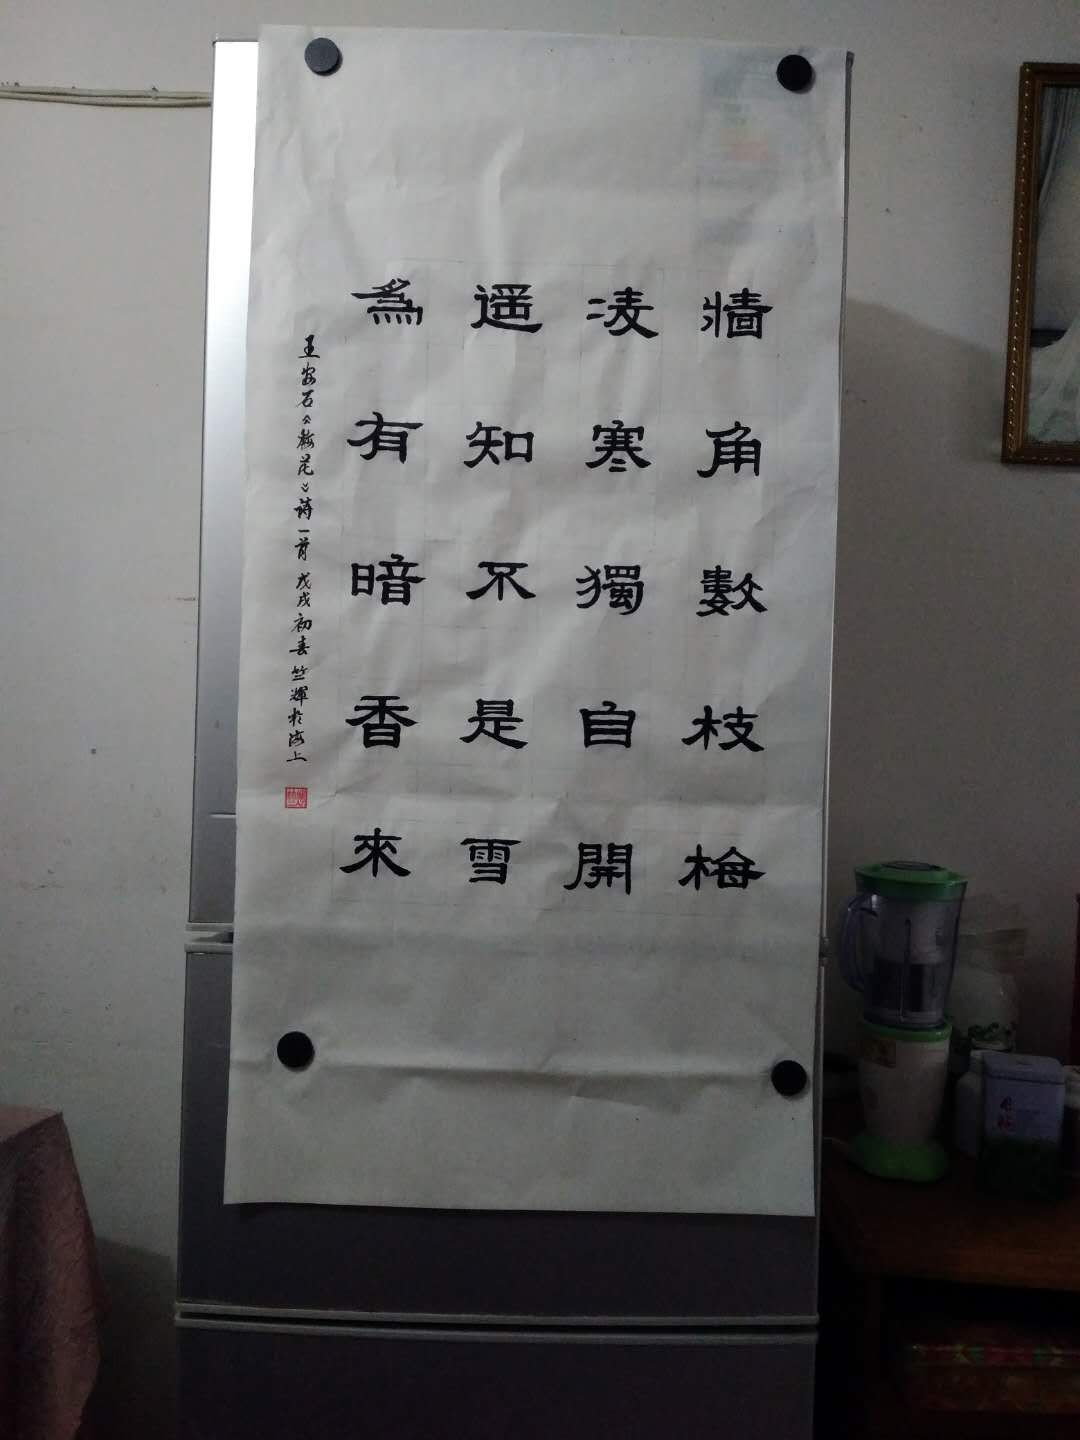 牆角數枝梅
凌寒獨自開
遥知不是雪
為有暗香來
王安石《梅花》詩一首 戊戌初春 竺輝於海上